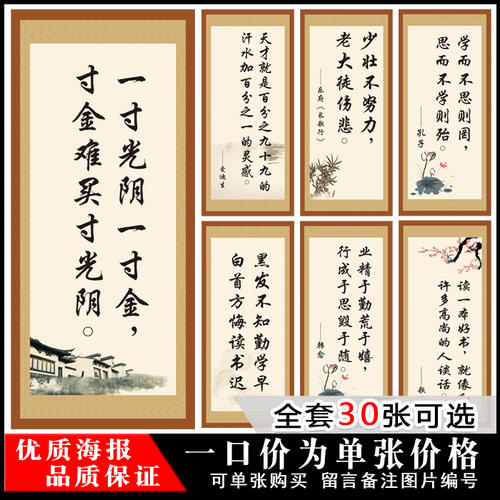 一寸光阴一寸金，
寸金难买寸光阴。
天才就是百分之九十九的
汗水加百分之一的灵感。
——爱迪生
少壮不努力，
老大徒伤悲。
——乐府《长歌行》
学而不思则罔，
思而不学则殆。
——孔子
黑发不知勤学早
白首方悔读书迟
业精于勤荒于嬉，
行成于思毁于随。
——韩愈
读一本好书，就像
许多高尚的人谈话。
——歌
全套30张可选
优质海报
品质保证
一口价为单张价格
可单张购买 留言备注图片编号